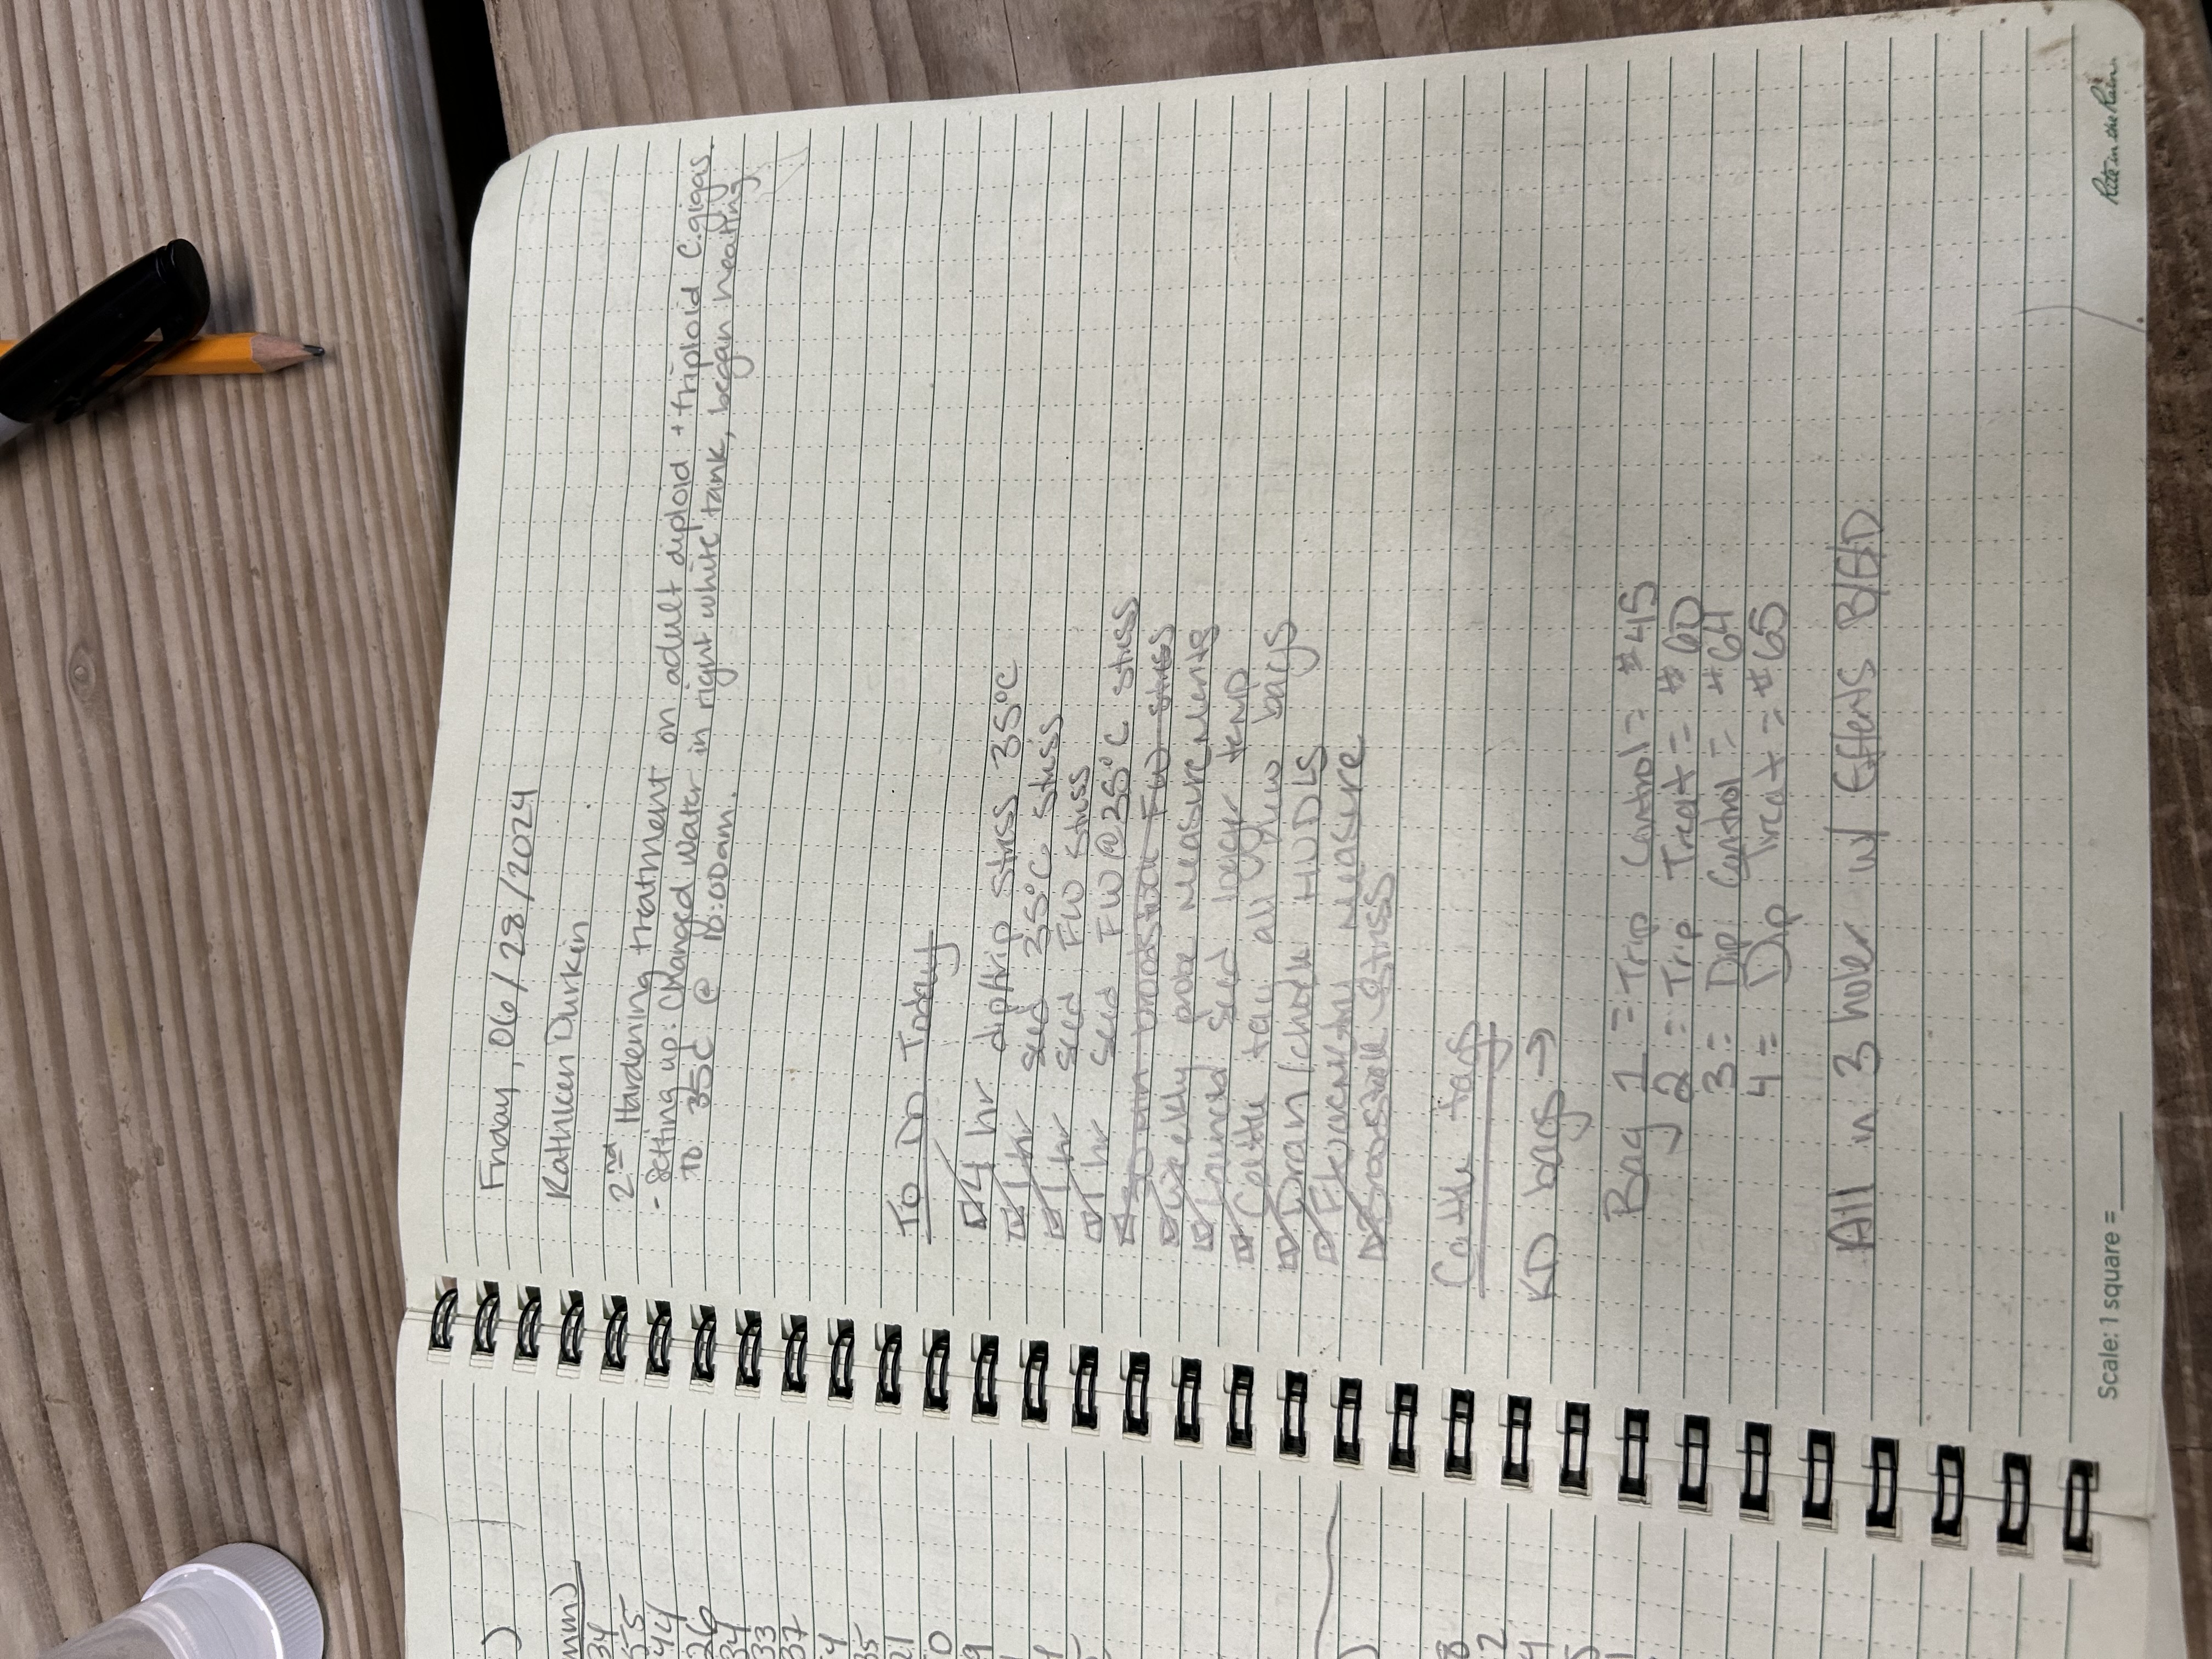 Friday, 06/28/2024
Kathleen Durkin
2nd Hardening treatment on adult diploid + triploid C.gigas.
- Setting up: Changed water in right white tank, began heating
to 35C @ 10:00am.
To Do Today
4 hr dip/trip stress 35°C
1 hr seed 35°C stress
1 hr seed FW stress
1 hr seed FW @ 35°C stress
30 min broodstock FW stress
Weekly probe measurements
Launch seed logger temp
Cattle tag all yuw bags
Drain/check HUDLS
measure
stress
Cattle tags
KD bags →
Bag 1 = Trip Control = #45
2 = Trip Treat = #60
3 = Dip Control = #64
4 = Dip Treat = #65
All in 3 holer w/ Effects B/E/D
Scale: 1 square =
Rite in the Rain
mm)
34
55
44
26
34
33
37